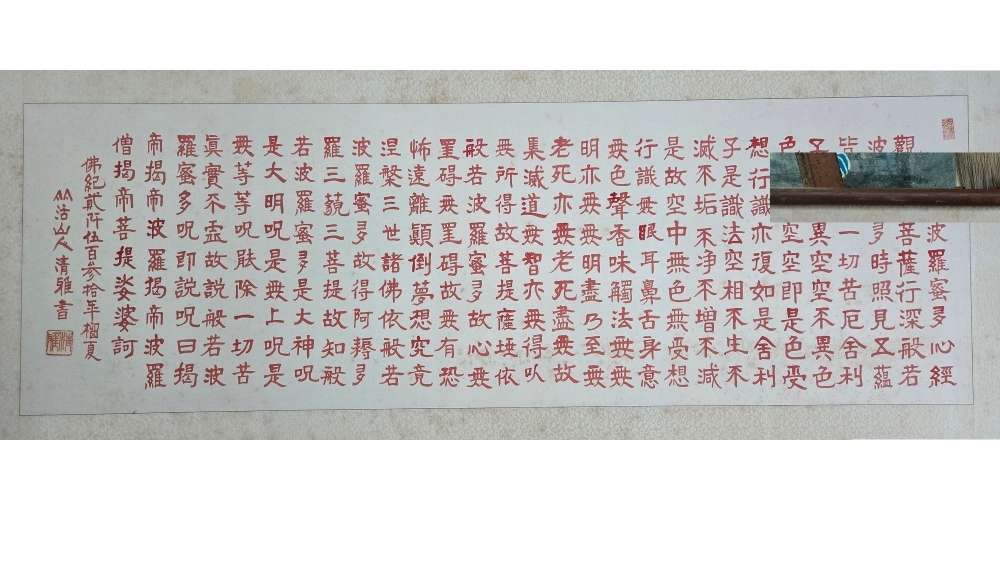 波羅蜜多心經
觀菩薩行深般若
波多時照見五蘊
皆一切苦厄舍利
異空空不異色
色空空即是色受
想行識亦復如是舍利
子是識法空相不生不
滅不垢不净不增不減
是故空中無色無受想
行識無眼耳鼻舌身意
無色聲香味觸法無無
明亦無無明盡乃至無
老死亦無老死盡無故
集滅道無智亦無得以
無所得故菩提薩埵依
般若波羅蜜多故心無
罣碍無罣碍故無有恐
怖遠離顛倒夢想究竟
涅槃三世諸佛依般若
波羅蜜多故得阿耨多
羅三藐三菩提故知般
若波羅蜜多是大神呪
是大明呪是無上呪是
無等等呪能除一切苦
真實不虛故說般若波
羅蜜多呪即說呪曰揭
帝揭帝波羅揭帝波羅
僧揭帝菩提娑婆訶
佛紀貳阡伍百參拾年榴夏
沽山人清雅書